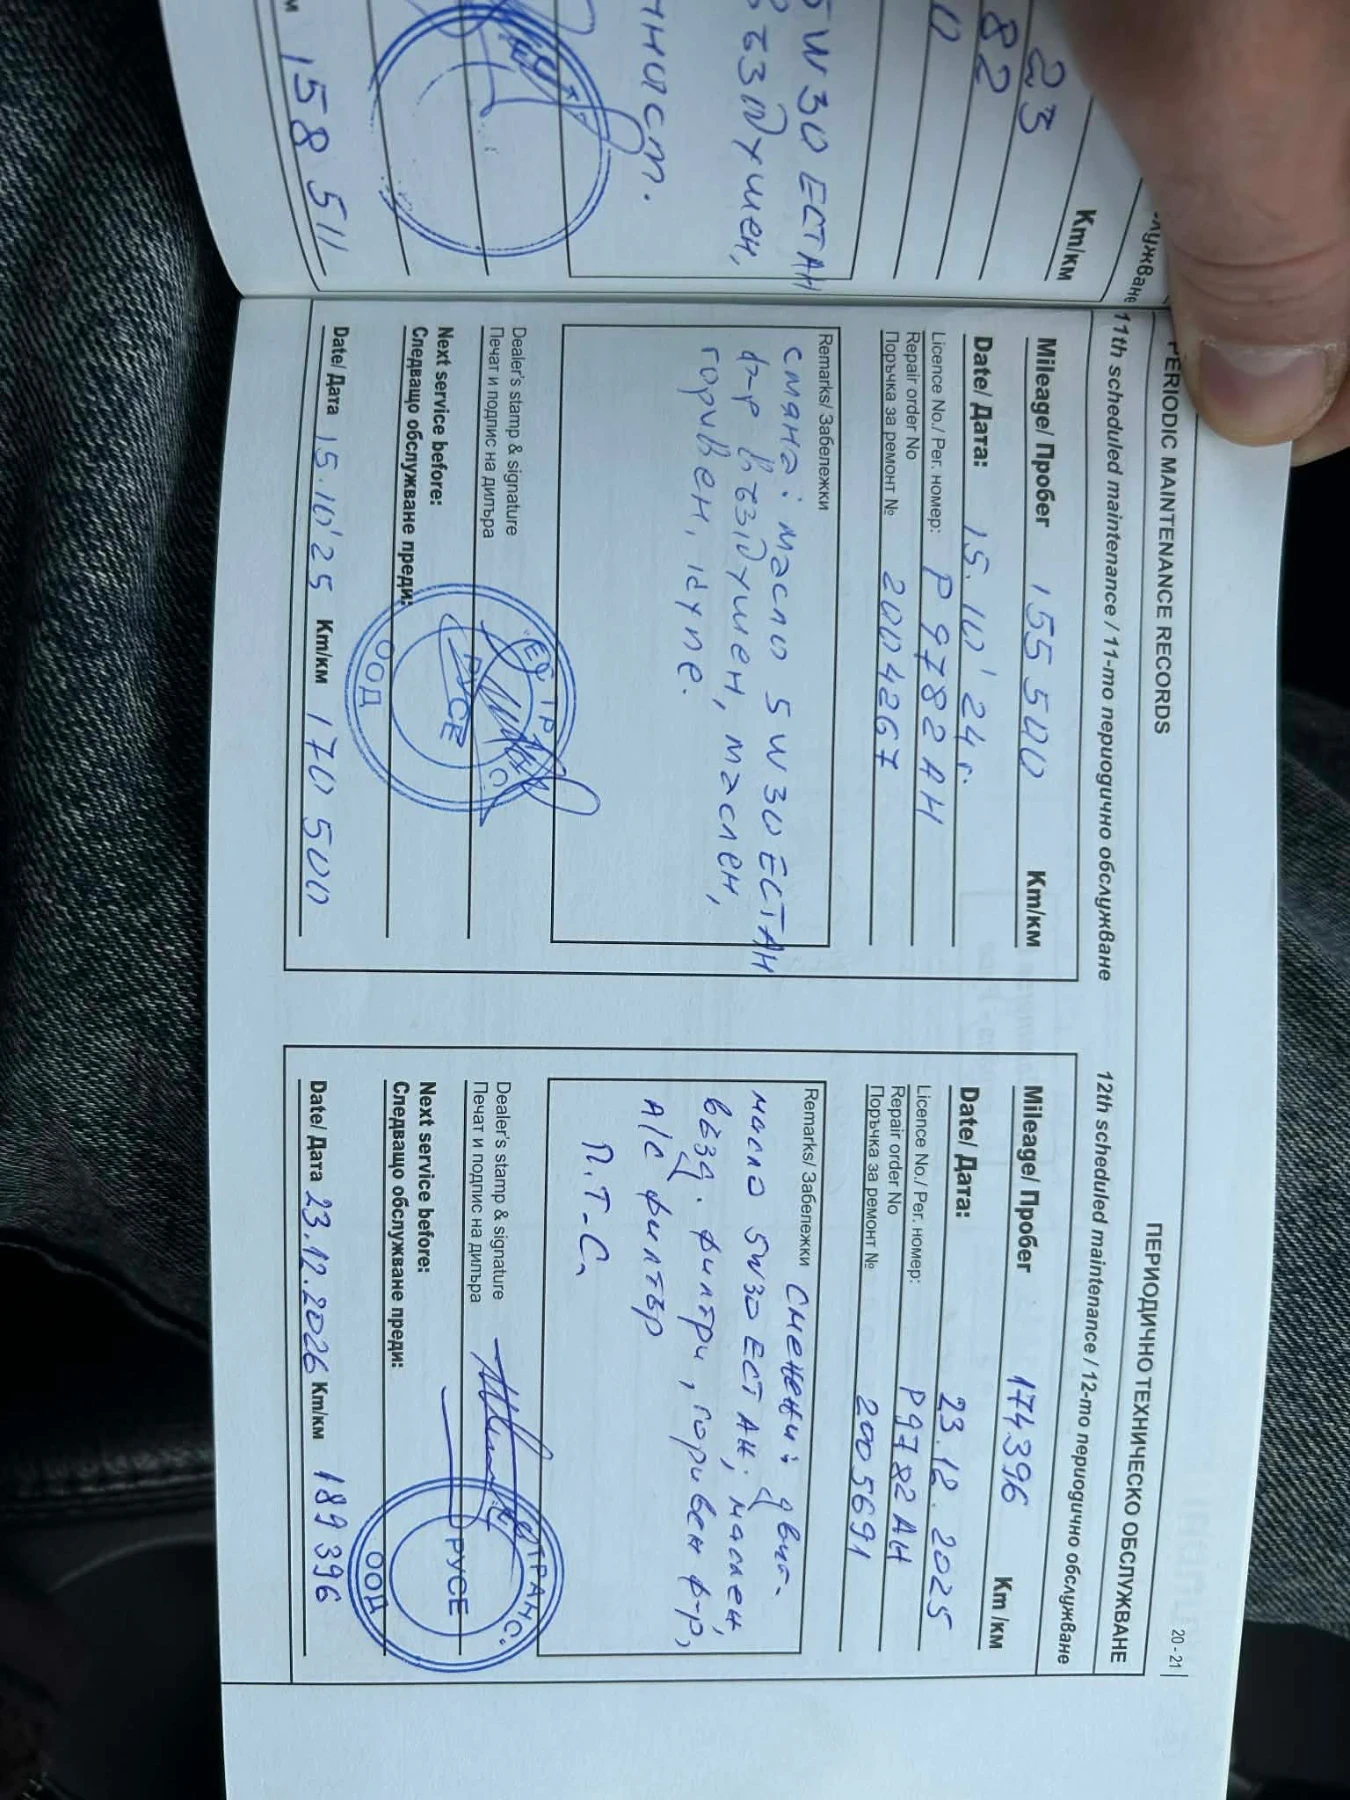 23
82
Km/km
5W30 ЕСТАН
въздушен,
158 511
PERIODIC MAINTENANCE RECORDS
ПЕРИОДИЧНО ТЕХНИЧЕСКО ОБСЛУЖВАНЕ
20 - 21
11th scheduled maintenance / 11-то периодично обслужване
Mileage/ Пробег 155 500 Km/км
Date/ Дата: 15.10'24г.
Licence No./ Рег. номер: P 9782 AH
Repair order No
Поръчка за ремонт № 2004267
Remarks/ Забележки
смяна: масло 5W30 ЕСТАН
ф-р въздушен, маслен,
горивен, купе.
Dealer's stamp & signature
Печат и подпис на дилъра
РУСЕ
ООД
Next service before:
Следващо обслужване преди:
Date/ Дата 15.10'25 Km/км 170 500
12th scheduled maintenance / 12-то периодично обслужване
Mileage/ Пробег 174396 Km /км
Date/ Дата: 23.12.2025
Licence No./ Рег. номер: P9782AH
Repair order No
Поръчка за ремонт № 2005691
Remarks/ Забележки Сменени: двиг.
масло 5W30 ЕСТАН; маслен,
възд. филтри, горивен ф-р,
A/C филтър
П.Т-С.
Dealer's stamp & signature
Печат и подпис на дилъра
ТРАНС"
РУСЕ
ООД
Next service before:
Следващо обслужване преди:
Date/ Дата 23.12.2026 Km/км 189396